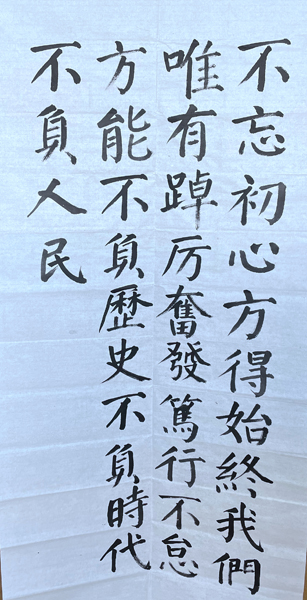 不忘初心方得始終我們
唯有踔厉奮發篤行不怠
方能不負歷史不負時代
不負人民